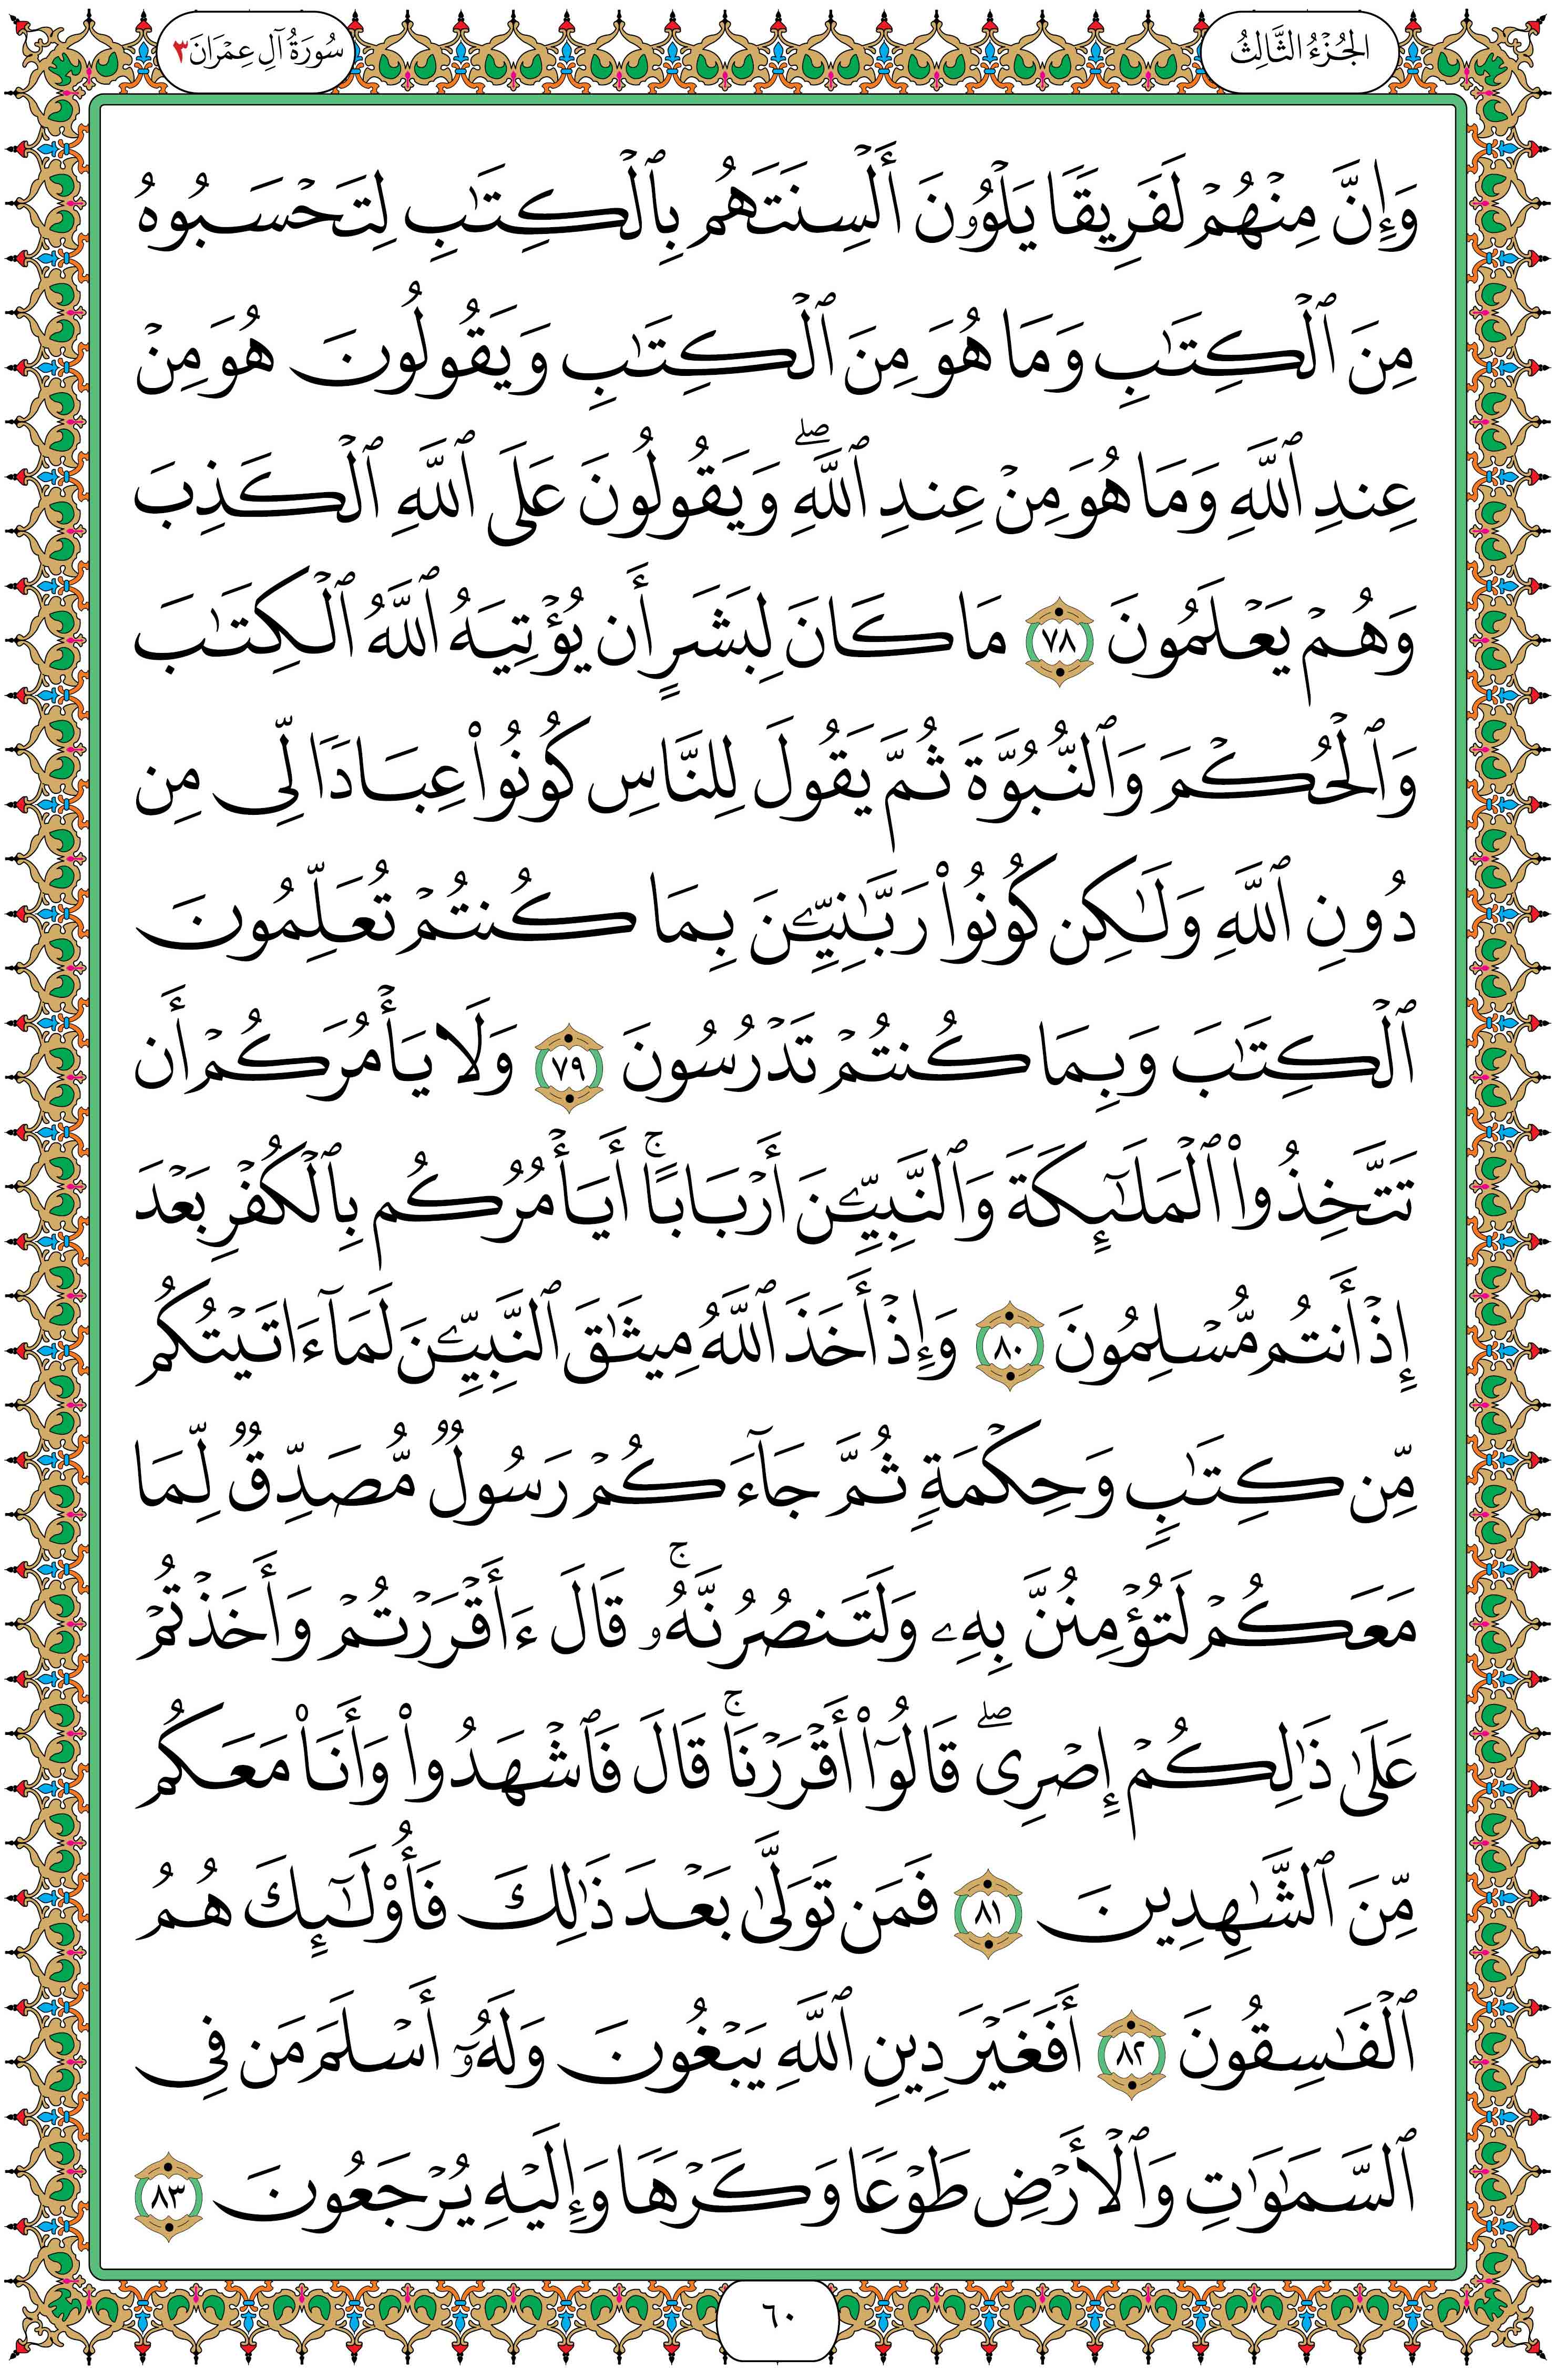 الجُزْءُ الثَّالِثُ
سُورَةُ آلِ عِمْرَانَ ٣
وَإِنَّ مِنْهُمْ لَفَرِيقًا يَلْوُۥنَ أَلْسِنَتَهُم بِٱلْكِتَٰبِ لِتَحْسَبُوهُ
مِنَ ٱلْكِتَٰبِ وَمَا هُوَ مِنَ ٱلْكِتَٰبِ وَيَقُولُونَ هُوَ مِنْ
عِندِ ٱللَّهِ وَمَا هُوَ مِنْ عِندِ ٱللَّهِۖ وَيَقُولُونَ عَلَى ٱللَّهِ ٱلْكَذِبَ
وَهُمْ يَعْلَمُونَ ٧٨ مَا كَانَ لِبَشَرٍ أَن يُؤْتِيَهُ ٱللَّهُ ٱلْكِتَٰبَ
وَٱلْحُكْمَ وَٱلنُّبُوَّةَ ثُمَّ يَقُولَ لِلنَّاسِ كُونُوا۟ عِبَادًا لِّى مِن
دُونِ ٱللَّهِ وَلَٰكِن كُونُوا۟ رَبَّٰنِيِّۦنَ بِمَا كُنتُمْ تُعَلِّمُونَ
ٱلْكِتَٰبَ وَبِمَا كُنتُمْ تَدْرُسُونَ ٧٩ وَلَا يَأْمُرَكُمْ أَن
تَتَّخِذُوا۟ ٱلْمَلَٰٓئِكَةَ وَٱلنَّبِيِّۦنَ أَرْبَابًاۚ أَيَأْمُرُكُم بِٱلْكُفْرِ بَعْدَ
إِذْ أَنتُم مُّسْلِمُونَ ٨٠ وَإِذْ أَخَذَ ٱللَّهُ مِيثَٰقَ ٱلنَّبِيِّۦنَ لَمَآ ءَاتَيْتُكُم
مِّن كِتَٰبٍ وَحِكْمَةٍ ثُمَّ جَآءَكُمْ رَسُولٌ مُّصَدِّقٌ لِّمَا
مَعَكُمْ لَتُؤْمِنُنَّ بِهِۦ وَلَتَنصُرُنَّهُۥۚ قَالَ ءَأَقْرَرْتُمْ وَأَخَذْتُمْ
عَلَىٰ ذَٰلِكُمْ إِصْرِىۖ قَالُوٓا۟ أَقْرَرْنَاۚ قَالَ فَٱشْهَدُوا۟ وَأَنَا۠ مَعَكُم
مِّنَ ٱلشَّٰهِدِينَ ٨١ فَمَن تَوَلَّىٰ بَعْدَ ذَٰلِكَ فَأُو۟لَٰٓئِكَ هُمُ
ٱلْفَٰسِقُونَ ٨٢ أَفَغَيْرَ دِينِ ٱللَّهِ يَبْغُونَ وَلَهُۥٓ أَسْلَمَ مَن فِى
ٱلسَّمَٰوَٰتِ وَٱلْأَرْضِ طَوْعًا وَكَرْهًا وَإِلَيْهِ يُرْجَعُونَ ٨٣
٦٠